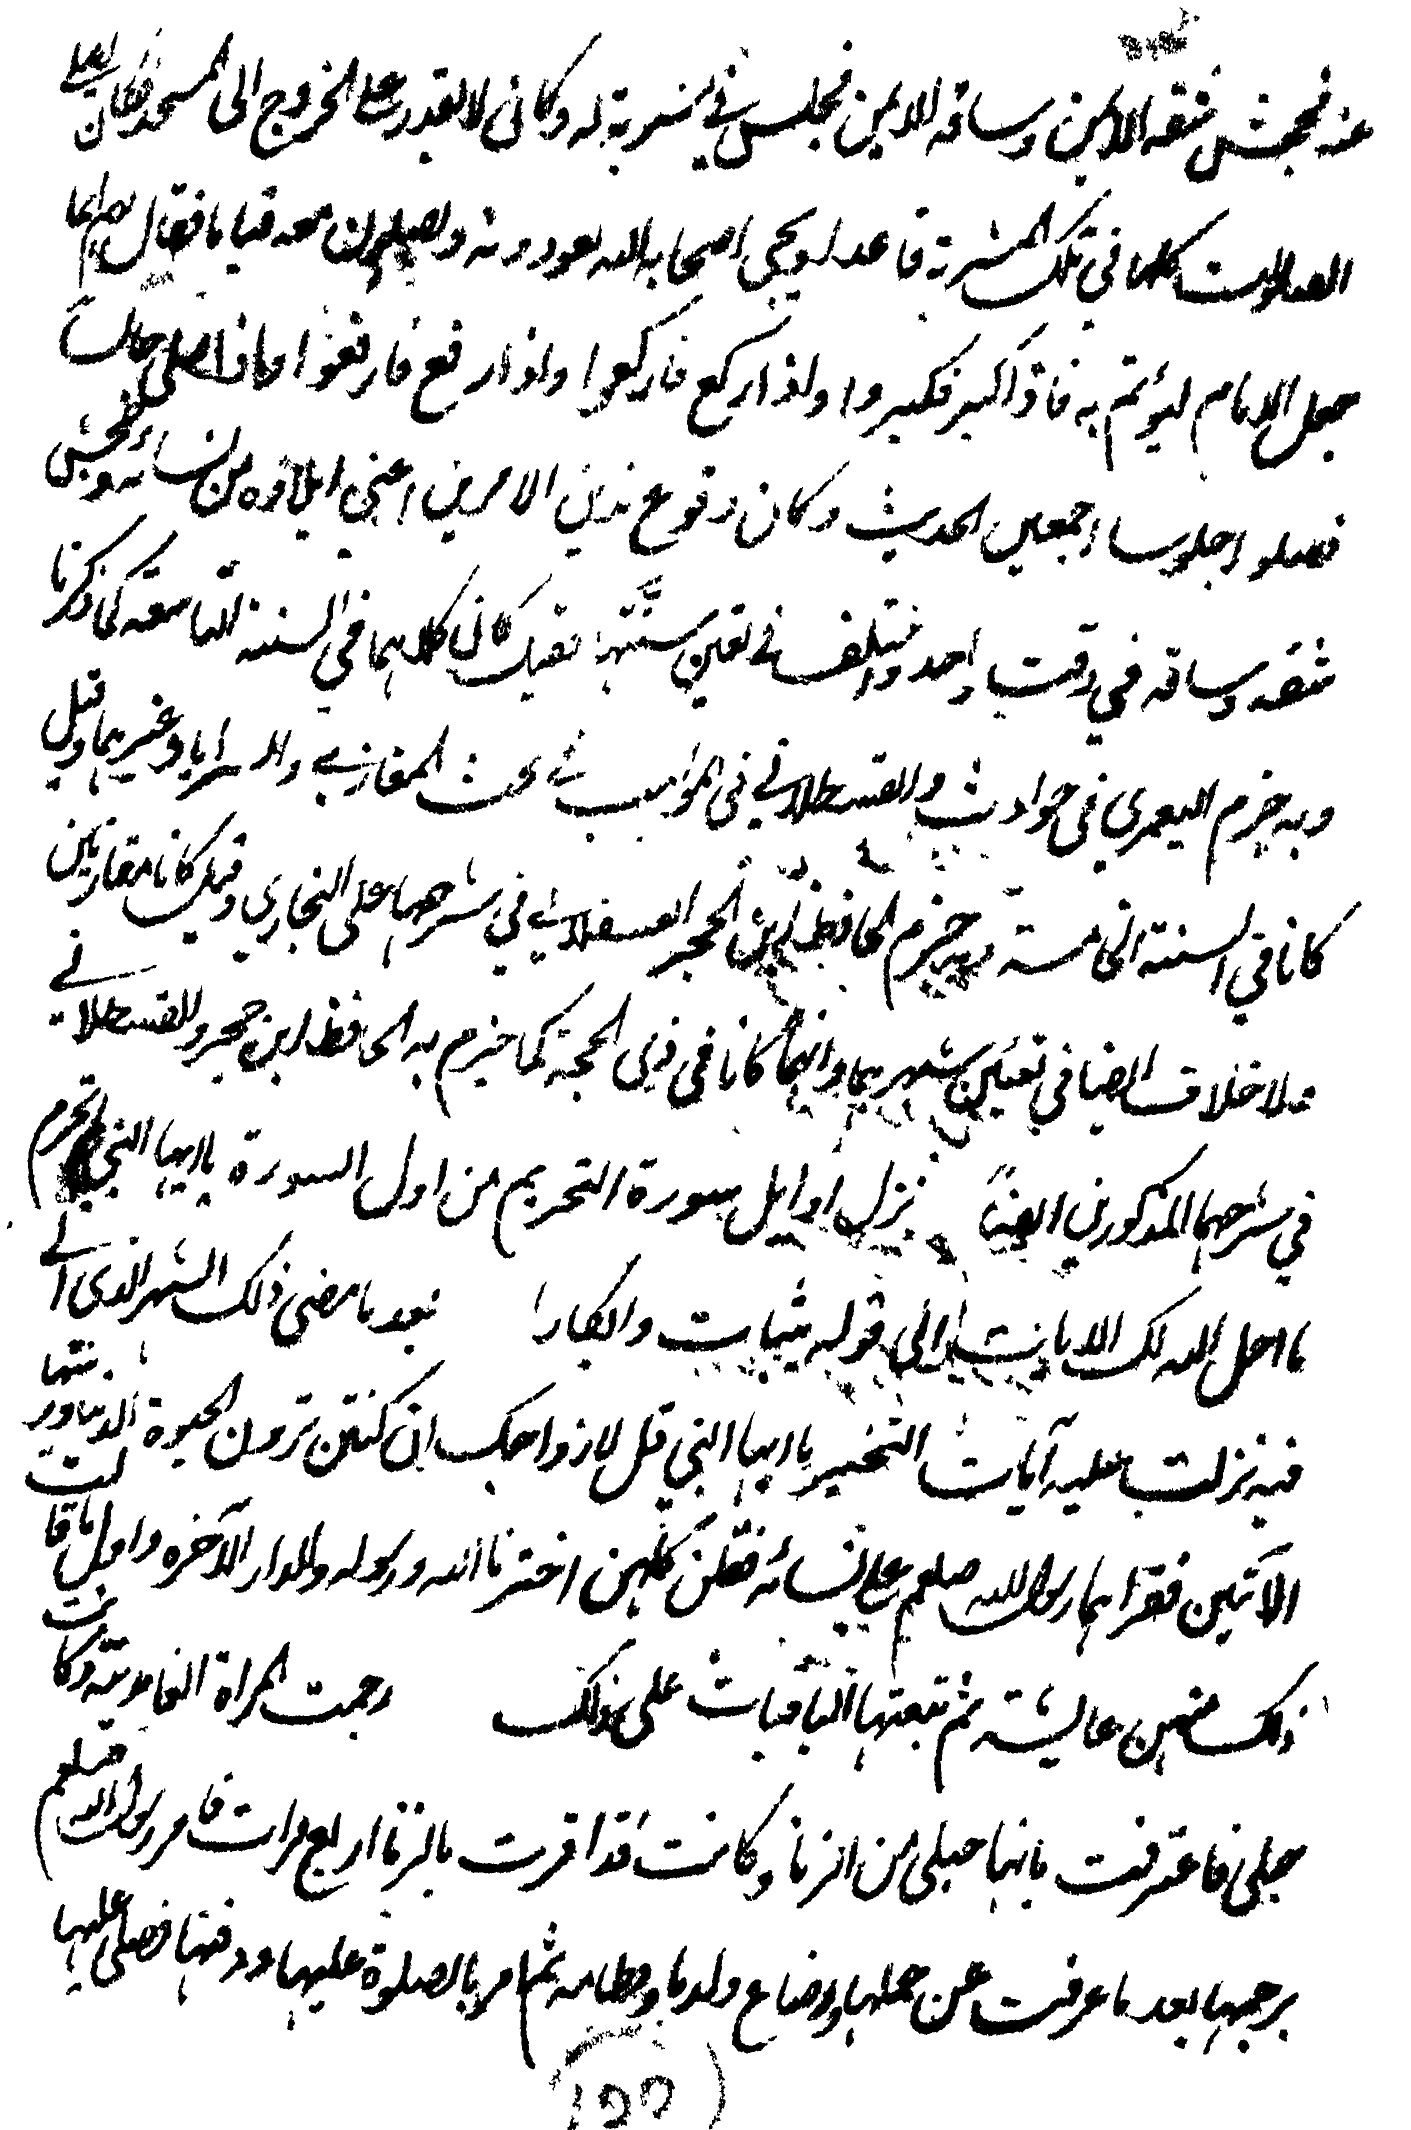 عنه فجحش شقه الايمن وساقه الايمن فجلس في مشربة له وكان لا يقدر على الخروج الى المسجد فكان يصلي
الصلوات كلها في تلك المشربة قاعدا ويجي اصحابه اليه يعودونه ويصلون معه قياما فقال لهم انما
جعل الامام ليؤتم به فاذا كبر فكبروا واذا ركع فاركعوا واذا رفع فارفعوا واذا صلى جالسا
فصلوا جلوسا اجمعين الحديث وكان وقوع هذين الامرين اعني ايلاؤه من نسائه وجحش
شقه وساقه في وقت واحد واختلف في تعين سنتهما فقيل كان كلاهما في السنة التاسعة كما ذكرنا
وبه جزم اليعمري في حوادث والقسطلاني في المواهب في بحث المغازي والسرايا وغيرهما وقيل
كانا في السنة الخامسة وبه جزم الحافظ ابن الحجر العسقلاني في شرحهما على البخاري وقيل كانا مقارنين
ملا خلاف ايضا في تعيين شهرهما وانهما كانا في ذي الحجة كما جزم به الحافظ ابن حجر والقسطلاني
في شرحهما المذكورين ايضا نزل اوايل سورة التحريم من اول السورة يا ايها النبي لم تحرم
ما احل الله لك الايات الى قوله ثيبات وابكارا بعد ما مضى ذلك الشهر الذي آلى
فيه نزلت عليه آيات التخيير يا ايها النبي قل لازواجك ان كنتن تردن الحيوة الدنيا وزينتها
الآيتين فقراهما رسول الله صلعم على نسائه فقلن كلهن اخترنا الله ورسوله والدار الآخره واول ما قالت
ذلك منهن عايشة ثم تبعتها الباقيات على ذلك رجمت المراة الغامدية وكانت
حبلى فاعترفت بانها حبلى من الزنا وكانت قد اقرت بالزنا اربع مرات فامر رسول الله صلعم
برجمها بعد ما عرفت عن حملها ورضاع ولدها وفطامه ثم امر بالصلوة عليها ودفنها فصلى عليها
(١٥٥)